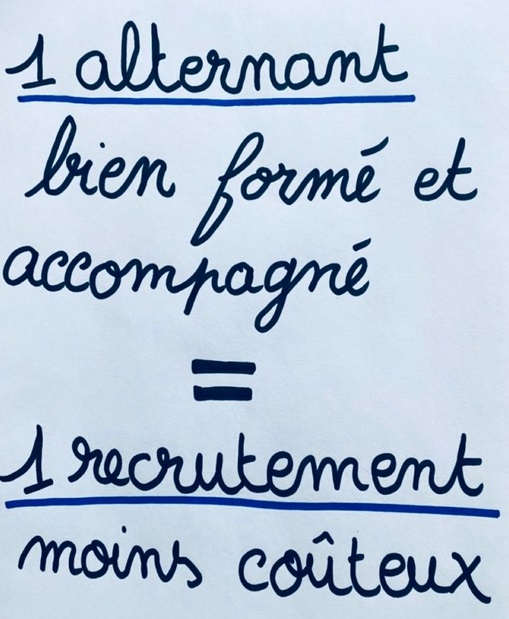 1 alternant
bien formé et
accompagné
=
1 recrutement
moins coûteux